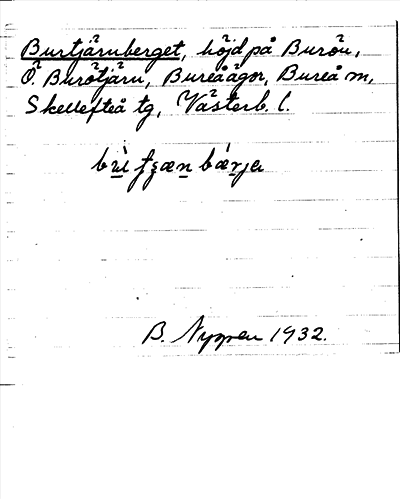 Burtjärnberget, höjd på Burön,
Ö. Burötjärn, Bureåägor, Bureå m,
Skellefteå tg, Västerb. l.
B. Nygren 1932.